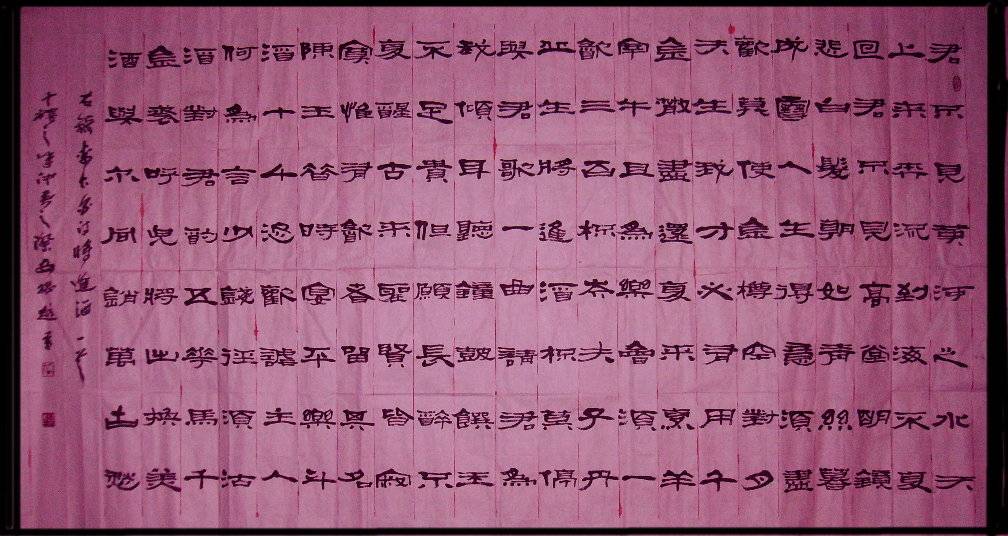 君不見黃河之水天
上來奔流到海不復
回君不見高堂明鏡
悲白髮朝如青絲暮
成雪人生得意須盡
歡莫使金樽空對月
天生我才必有用千
金散盡還復來烹羊
宰牛且為樂會須一
飲三百杯岑夫子丹
丘生將進酒杯莫停
與君歌一曲請君為
我傾耳聽鐘鼓饌玉
不足貴但願長醉不
復醒古來聖賢皆寂
寞惟有飲者留其名
陳王昔時宴平樂斗
酒十千恣歡謔主人
何為言少錢徑須沽
酒對君酌五華馬千
金裘呼兒將出換美
酒與尔同銷萬古愁
右錄李太白詩將進酒一首